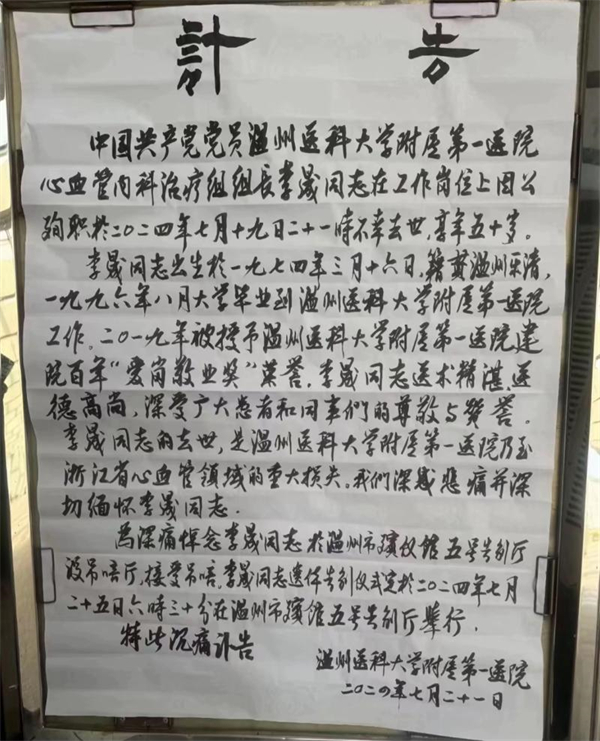 訃告
中国共产党党员温州医科大学附属第一医院
心血管内科治疗组组长李晟同志在工作岗位上因公
殉职於二〇二四年七月十九日二十一時不幸去世,享年五十岁。
李晟同志出生於一九七四年三月十六日,籍贯温州乐清,
一九九六年八月大学毕业到温州医科大学附属第一医院
工作,二〇一九年被授予温州医科大学附属第一医院建
院百年"爱岗敬业奖"荣誉。李晟同志医术精湛,医
德高尚,深受广大患者和同事們的尊敬与赞誉。
李晟同志的去世,是温州医科大学附属第一医院乃至
浙江省心血管领域的重大损失。我們深感悲痛并深
切缅怀李晟同志.
為深痛悼念李晟同志於温州市殡仪館五号告别厅
设吊唁厅,接受吊唁,李晟同志遗体告别仪式定於二〇二四年七月
二十五日六時三十分在温州市殡館五号告别厅舉行.
特此沉痛讣告
温州医科大学附属第一医院
二〇二四年七月二十一日